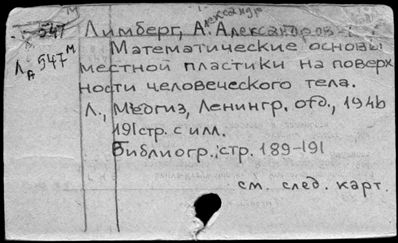 547 м Лимберг, А. Александров-
Александр
Л 547 м Математические основы
А местной пластики на поверх
ности человеческого тела.
Л., Медгиз, Ленингр. отд., 1946
191 стр. с илл.
Библиогр.: стр. 189-191
см. след. карт.